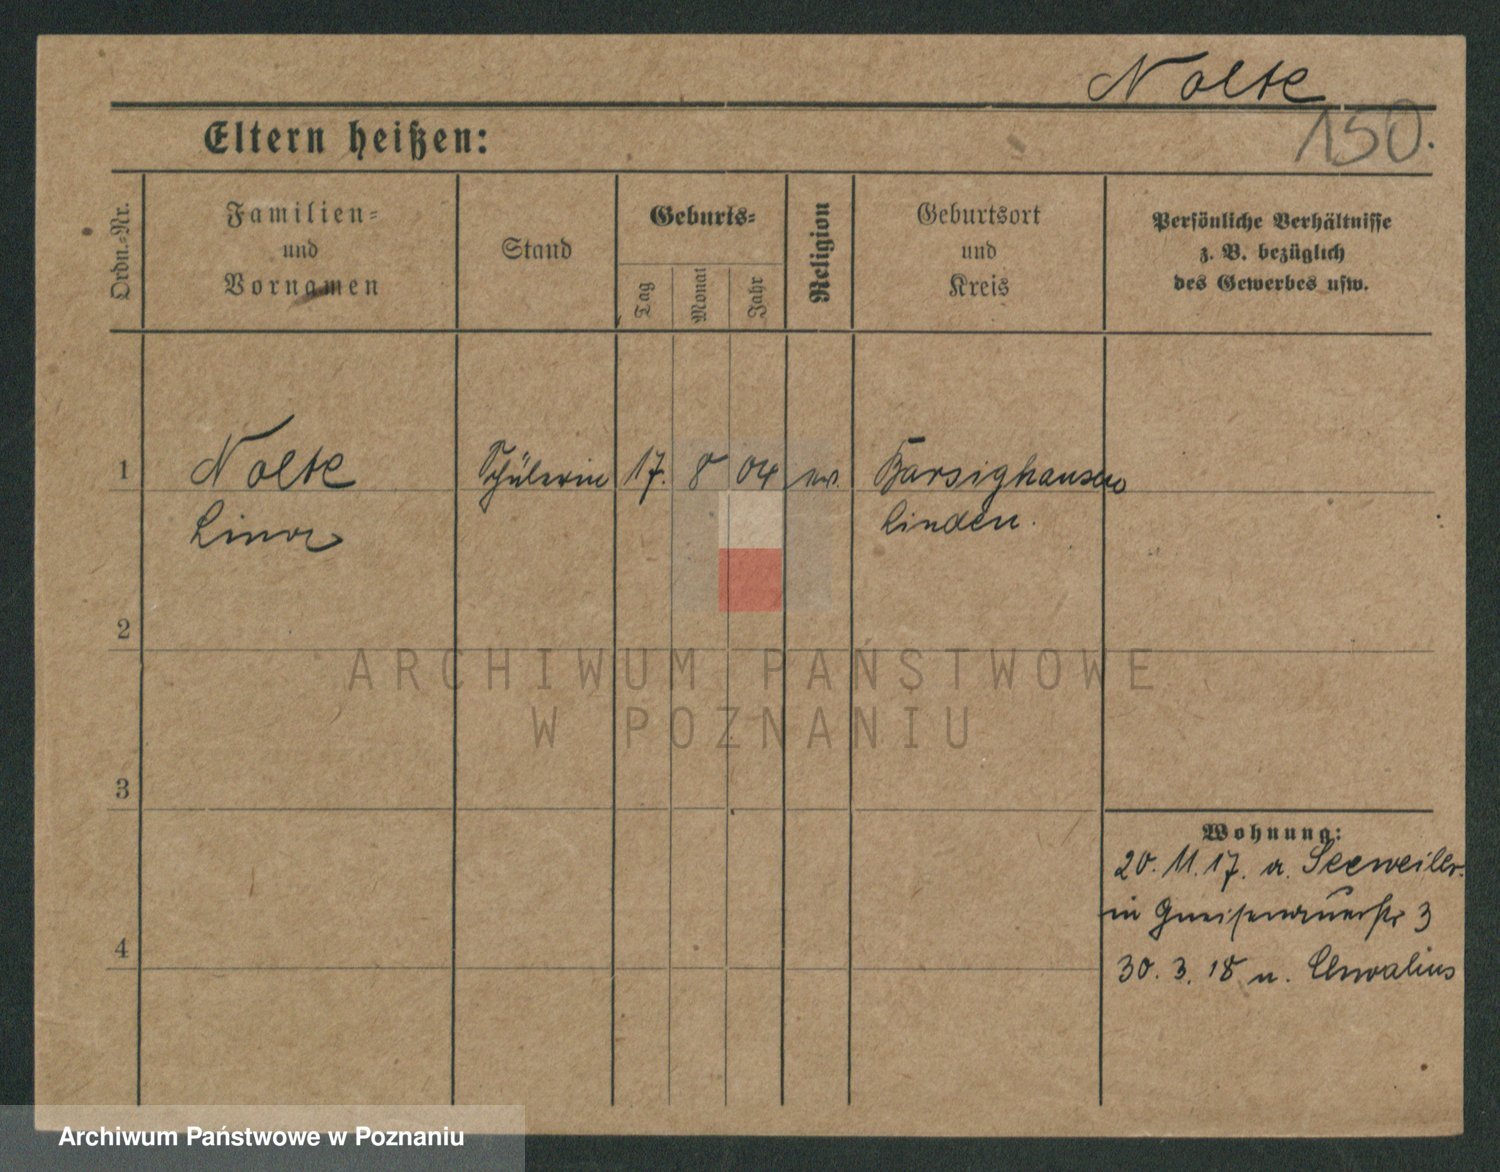 Nolte
150.
Eltern heißen:
Ordn.=Nr.
Familien=
und
Vornamen
Stand
Geburts=
Tag
Monat
Jahr
Religion
Geburtsort
und
Kreis
Persönliche Verhältnisse
z. B. bezüglich
des Gewerbes usw.
1 Nolte Schülerin 17. 8 04 ev. Barsighausen
Linden.
2
ARCHIWUM PAŃSTWOWE
W POZNANIU
3
Wohnung:
20. 11. 17. a.
in Gneisenauerstr 3
4
30. 3. 18 n.
Archiwum Państwowe w Poznaniu